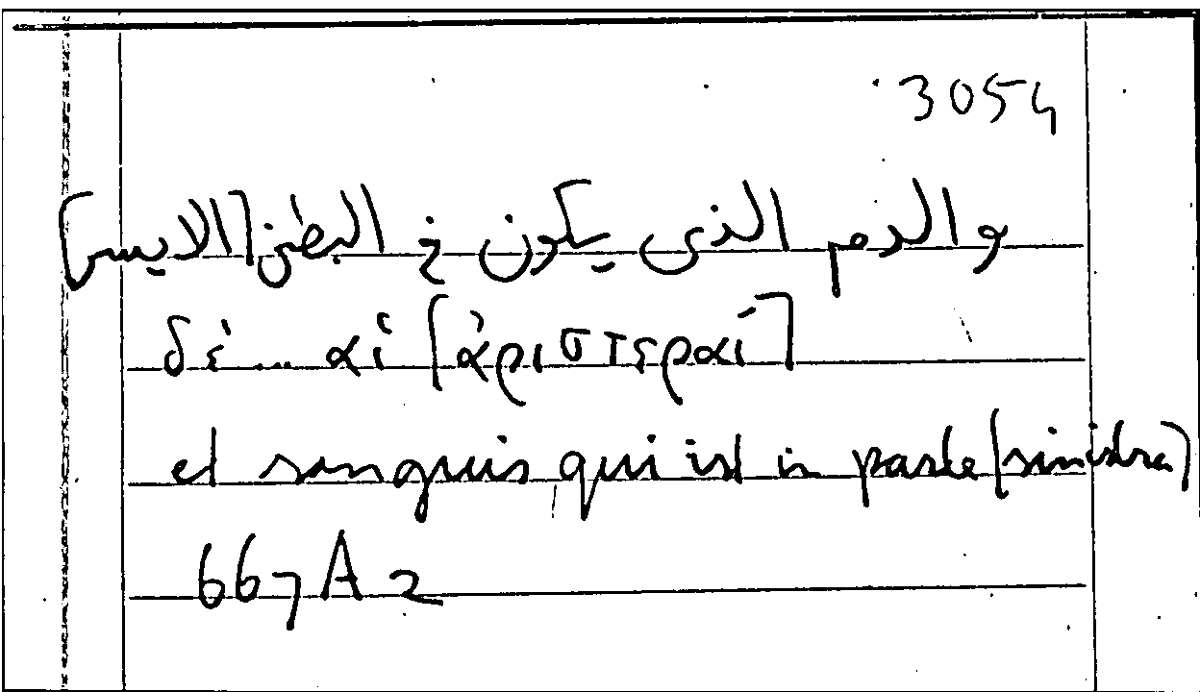 3054
والدم الذى يكون فى البطن [الايسر]
δέ ... αἱ [ἀριστεραί]
et sanguis qui est in parte [sinistra]
667 A 2